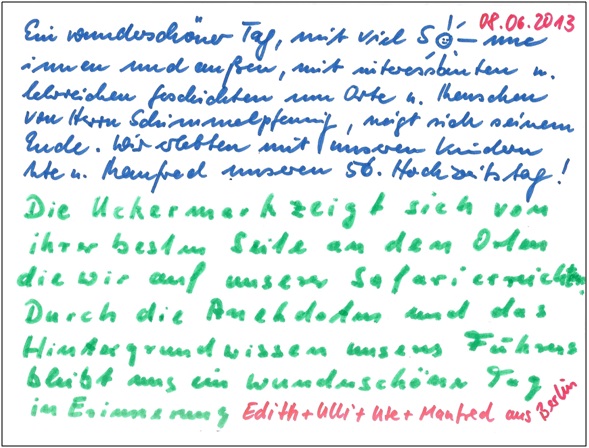 08.06.2013
Ein wunderschöner Tag, mit viel So-nne
innen und außen, mit interessanten u.
lehrreichen Geschichten um Orte u. Menschen
von Herrn Schimmelpfennig, neigt sich seinem
Ende. Wir erlebten mit unseren Kindern
Ute u. Manfred unseren 56. Hochzeitstag!
Die Uckermark zeigt sich von
ihrer besten Seite an den Orten
die wir auf unserer Safari erreichten.
Durch die Anekdoten und das
Hintergrundwissen unseres Führers
bleibt uns ein wunderschöner Tag
in Erinnerung Edith + Ulli + Ute + Manfred aus Berlin